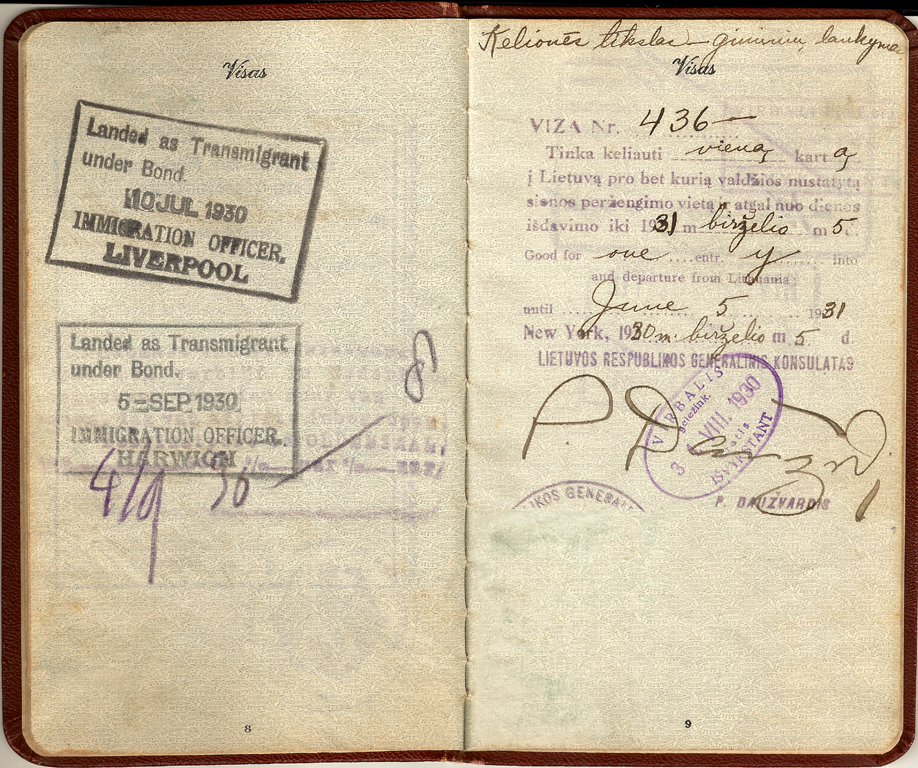 Visas
Landed as Transmigrant
under Bond.
10 JUL 1930
IMMIGRATION OFFICER.
LIVERPOOL
Landed as Transmigrant
under Bond.
5-SEP 1930
IMMIGRATION OFFICER.
HARWICH
4/9 30
8
Kelionės tikslas – giminių lankymas
Visas
VIZA Nr. 436
Tinka keliauti vieną kartą
į Lietuvą pro bet kurią valdžios nustatytą
sienos peržengimo vietą ir atgal nuo dienos
išdavimo iki 1931 m birželio m 5
Good for one entry into
and departure from Lithuania
until June 5 1931
New York, 1930 m. birželio m 5 d.
LIETUVOS RESPUBLIKOS GENERALINIS KONSULATAS
VIRBALIS
geležink.
VIII. 1930
IŠVYKSTANT
IKOS GENERAL
P. DAUŽVARDIS
9